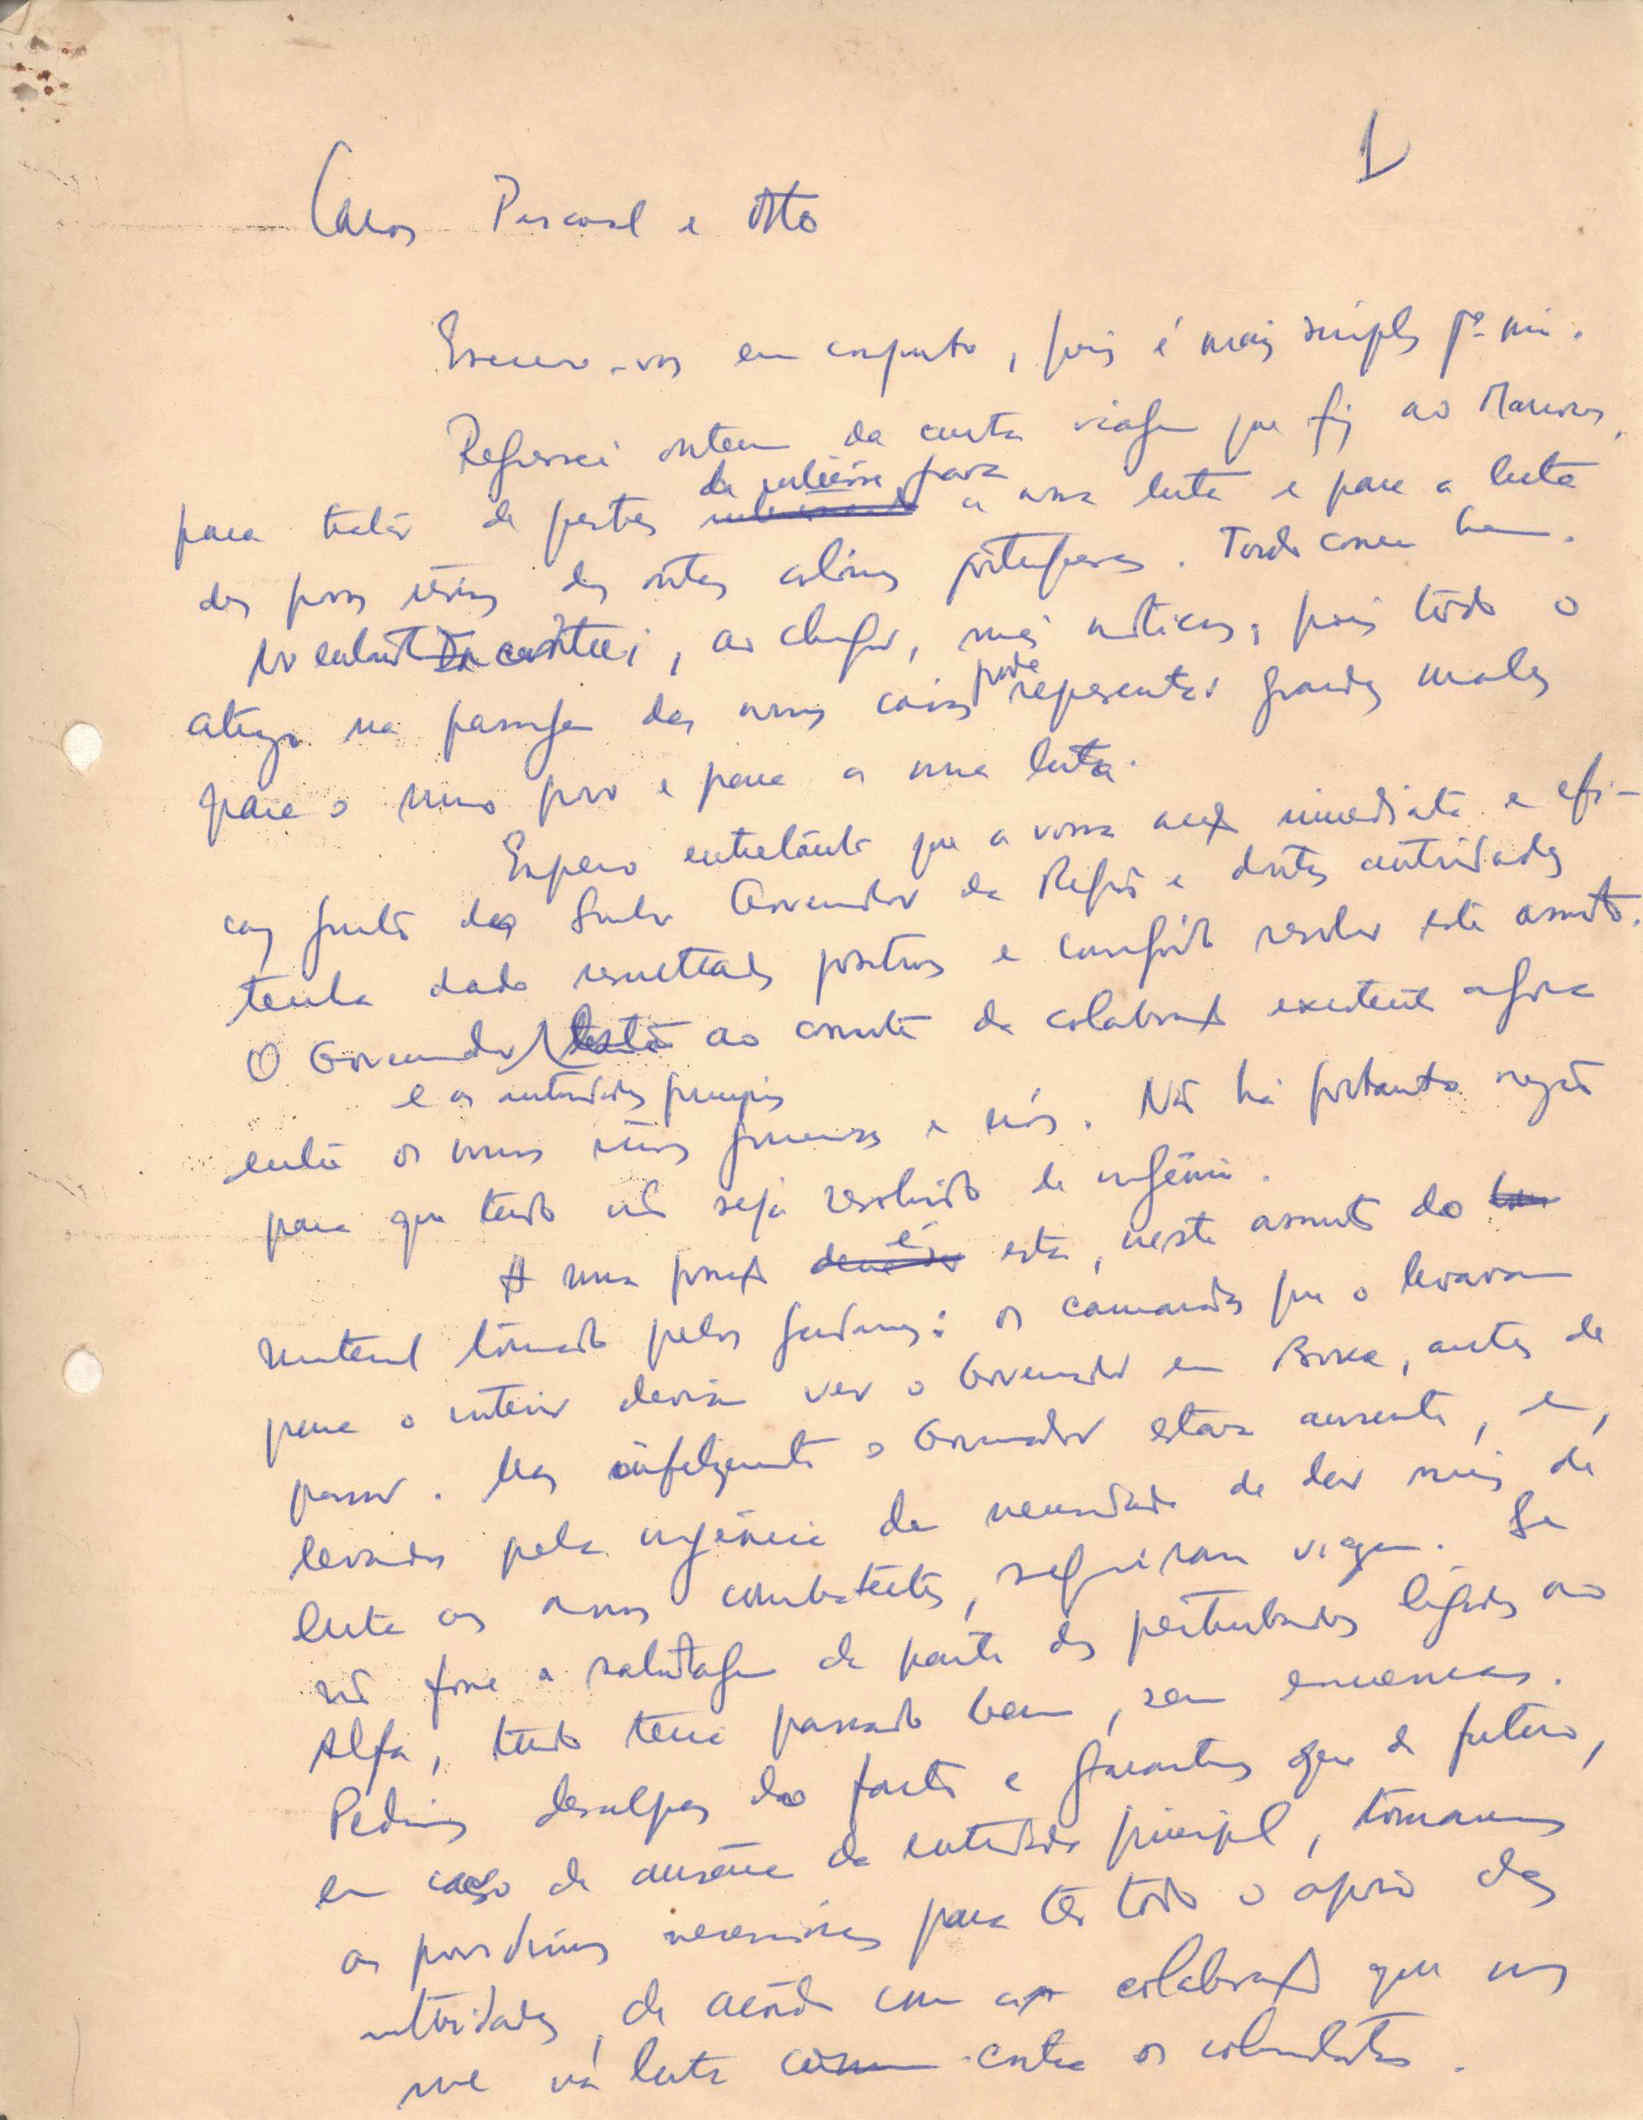 1
Caros Pascoal e Otto
Escrevo-vos em conjunto, pois é mais simples pª mim.
Regressei ontem da curta viagem que fiz ao Marrocos,
para tratar de questões de interêsse para a nossa luta e para a luta
dos povos irmãos das outras colónias portuguesas. Tudo correu bem.
No entanto encontrei, ao chegar, más notícias, pois todo o
atrazo na passagem das nossas coisas pode representar grandes males
para o nosso povo e para a nossa luta.
Espero entretanto que a vossa acção imediata e efi-
caz junto do Senhor Governador da Região e doutras autoridades
tenha dado resultados positivos e conseguido resolver este assunto.
O Governador está ao corrente da colaboração existente agora
e as autoridades
entre os nossos irmãos guineenses e nós. Não há portanto razão
para que tudo não seja resolvido de urgência.
A nossa posição é esta, neste assunto do
material tomado pelos guardas: os camaradas que o levavam
para o interior deviam ver o Governador em Boké, antes de
passar. Mas infelizmente o Governador estava ausente, e,
levados pela urgência da necessidade de dar meios de
luta aos nossos combatentes, seguiram viagem. Se
não fosse a sabotagem da parte dos perturbados ligados ao
Alfa, tudo teria passado bem, sem
Pedimos desculpas do facto e garantimos que de futuro,
em caso de ausência da entidade principal, tomaremos
as providências necessárias para ter todo o apoio das
autoridades, de acôrdo com a colaboração que nos
une na luta contra os colonialistas.